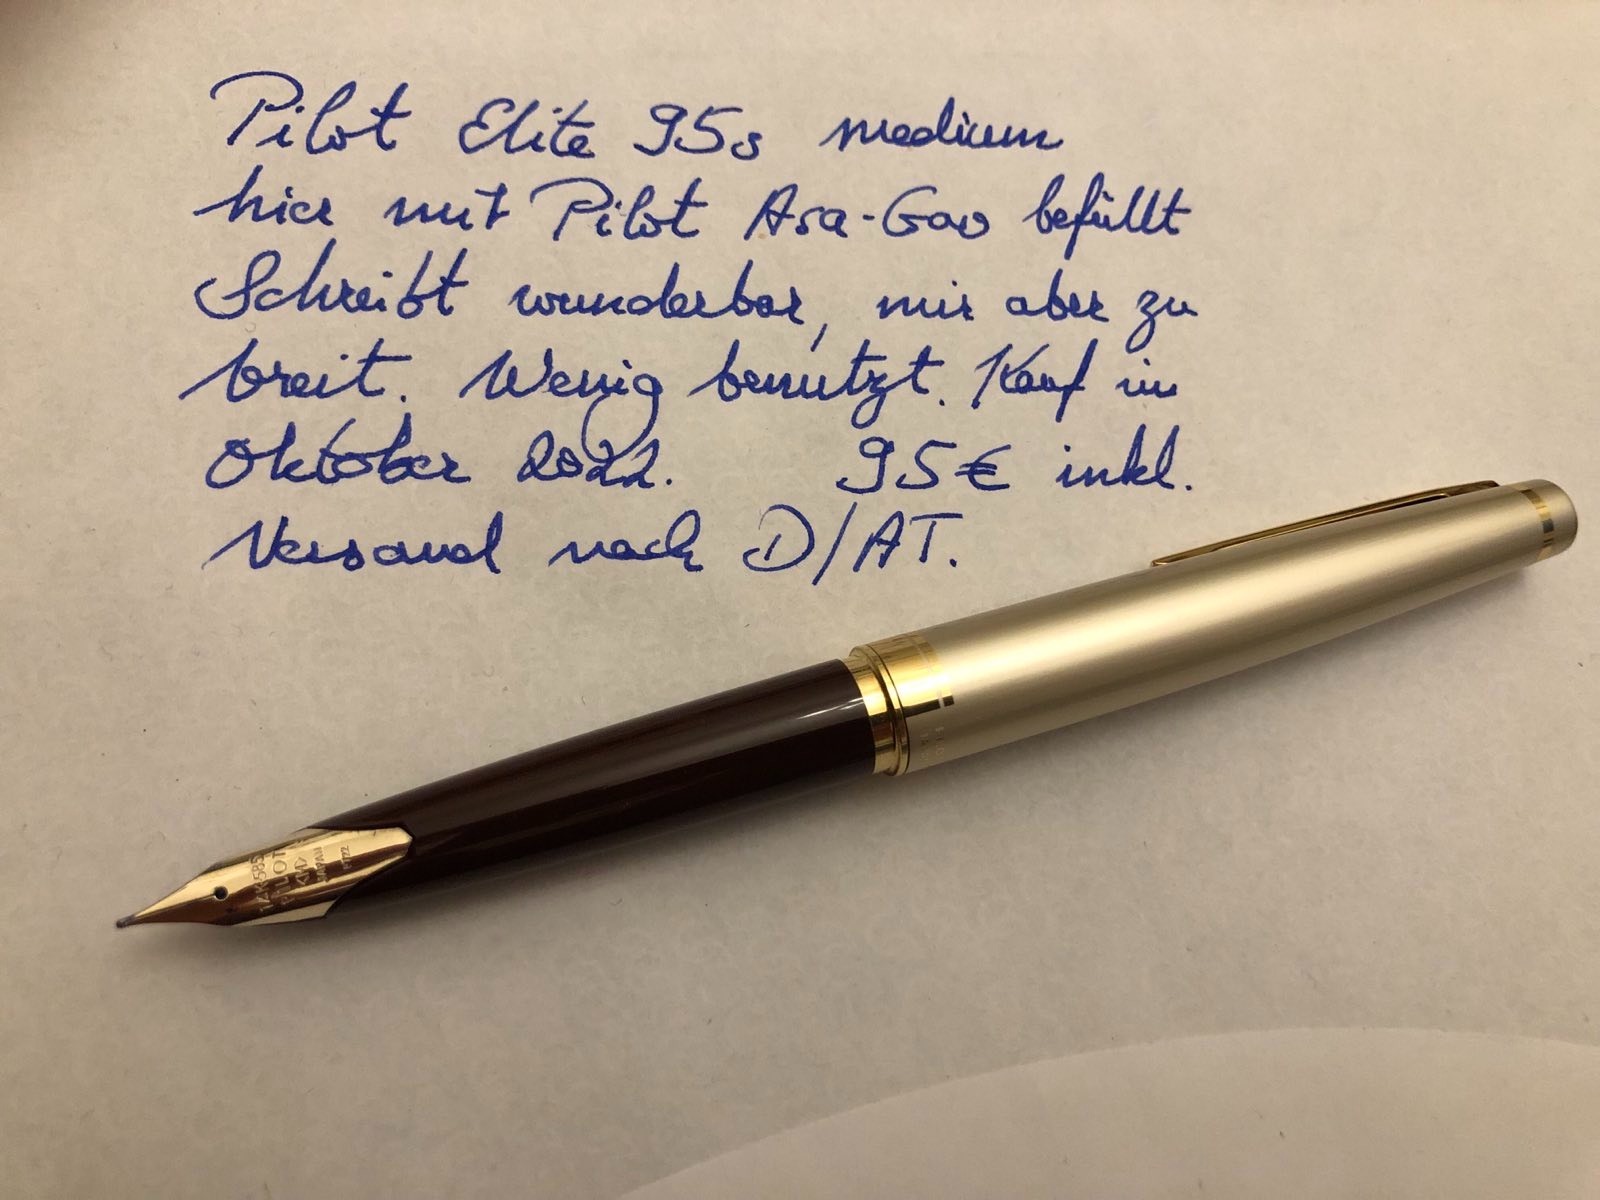 Pilot Elite 95s medium
hier mit Pilot Asa-Gao befüllt
Schreibt wunderbar, mir aber zu
breit. Wenig benutzt. Kauf im
Oktober 2022. 95€ inkl.
Versand nach D/AT.
14K585
PILOT
<M>
JAPAN